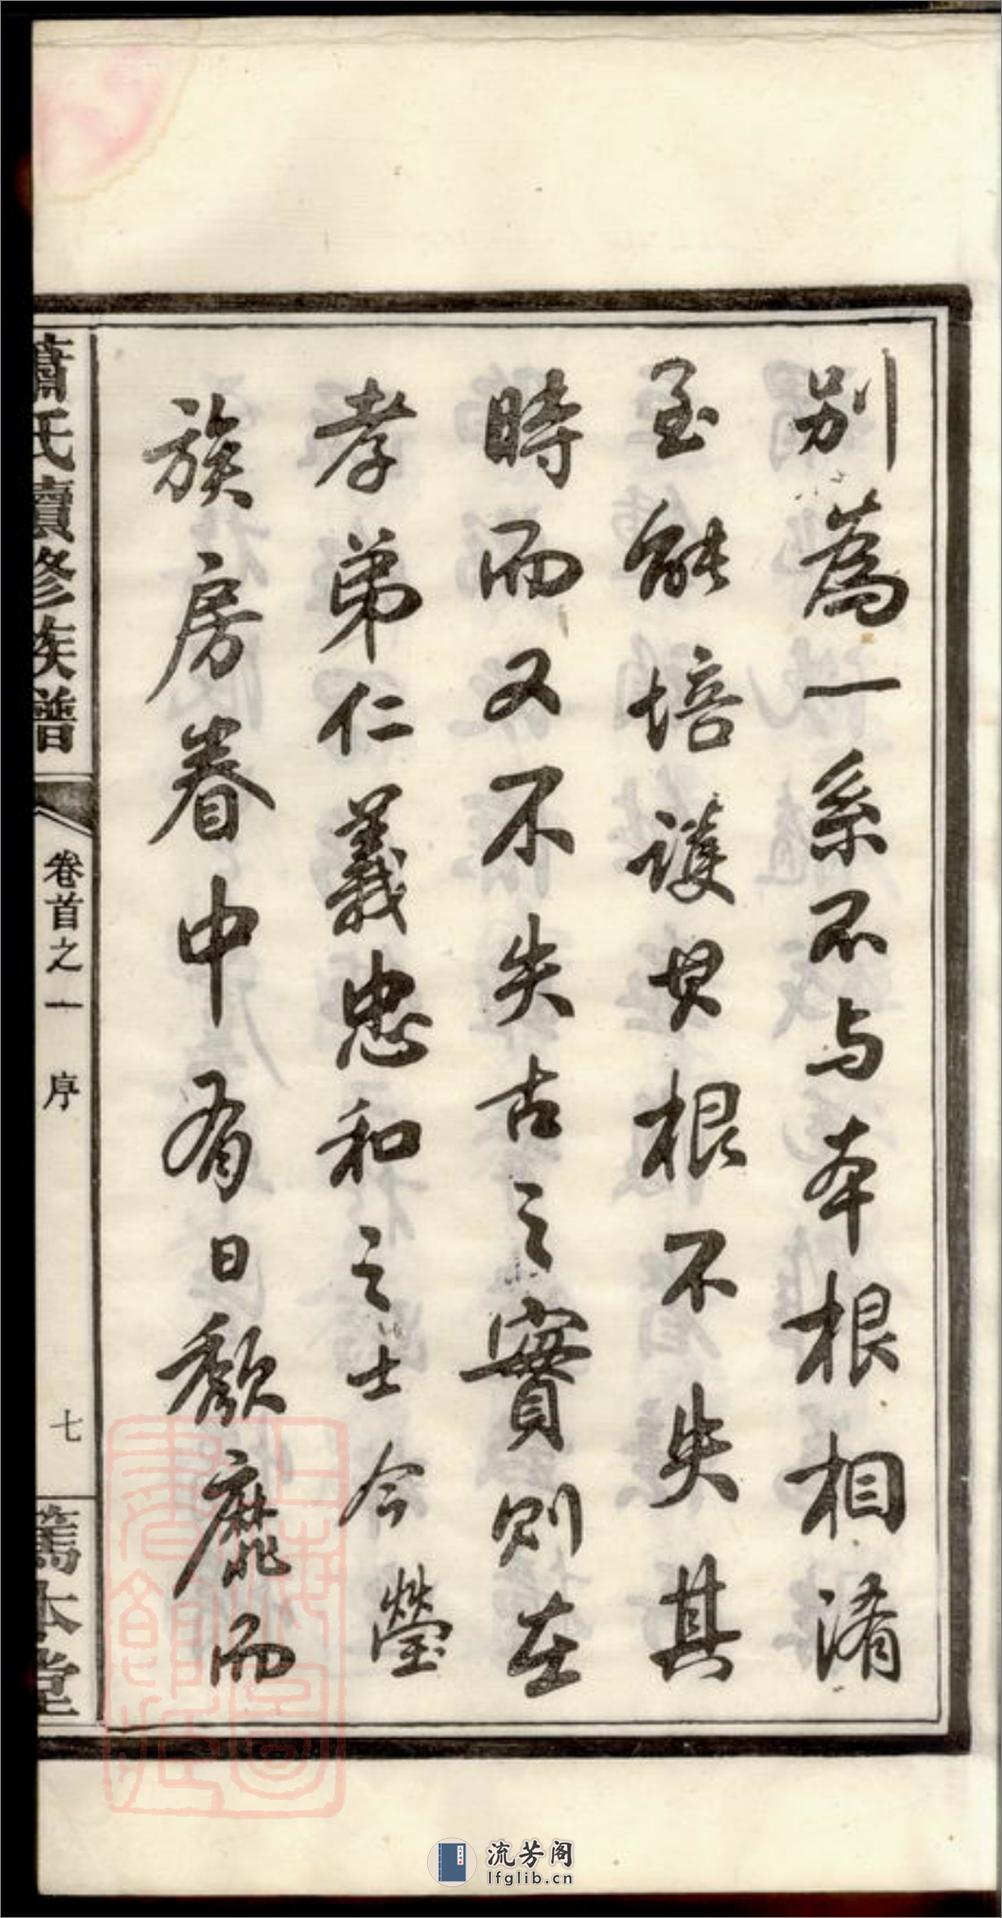 別為一系不与本根相淆
至能培護其根不失其
時而又不失古之實則在
孝弟仁義忠和之士今瑩
族房眷中有日頹靡而
蕭氏續修族譜
卷首之一 序
七
篤本堂
流芳阁
lfglib.cn